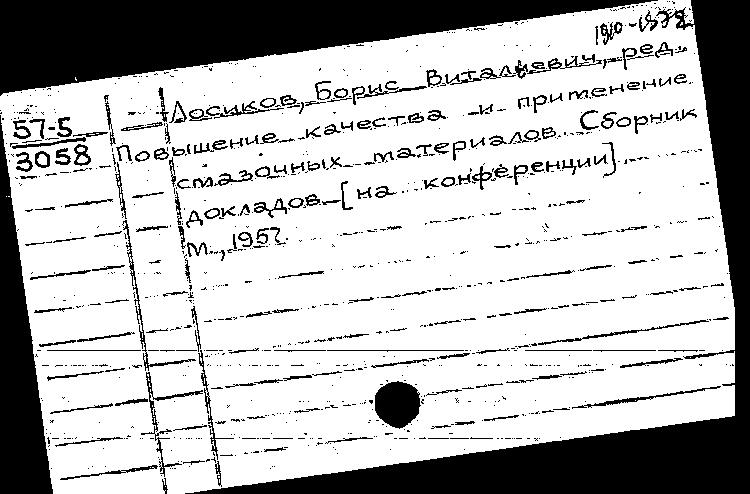 1910-1972
Лосиков, Борис Витальевич, ред.
57-5
3058
Повышение качества и применение
смазочных материалов. Сборник
докладов [на конференции]
М., 1957